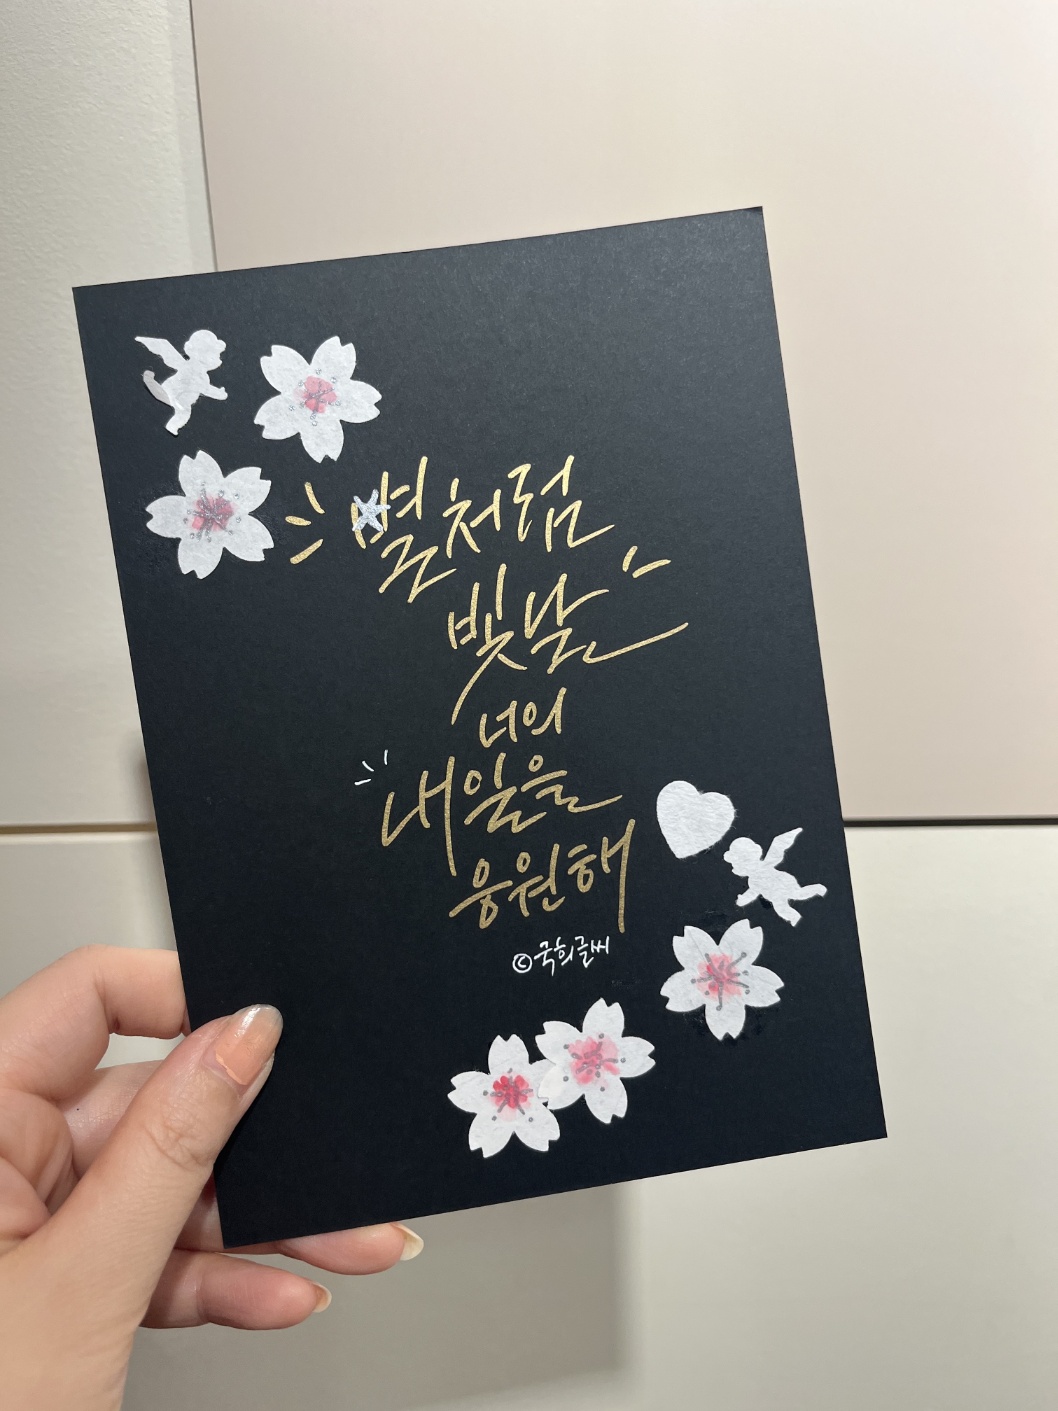 별처럼
빛날
너의
내일을
응원해
©국희글씨